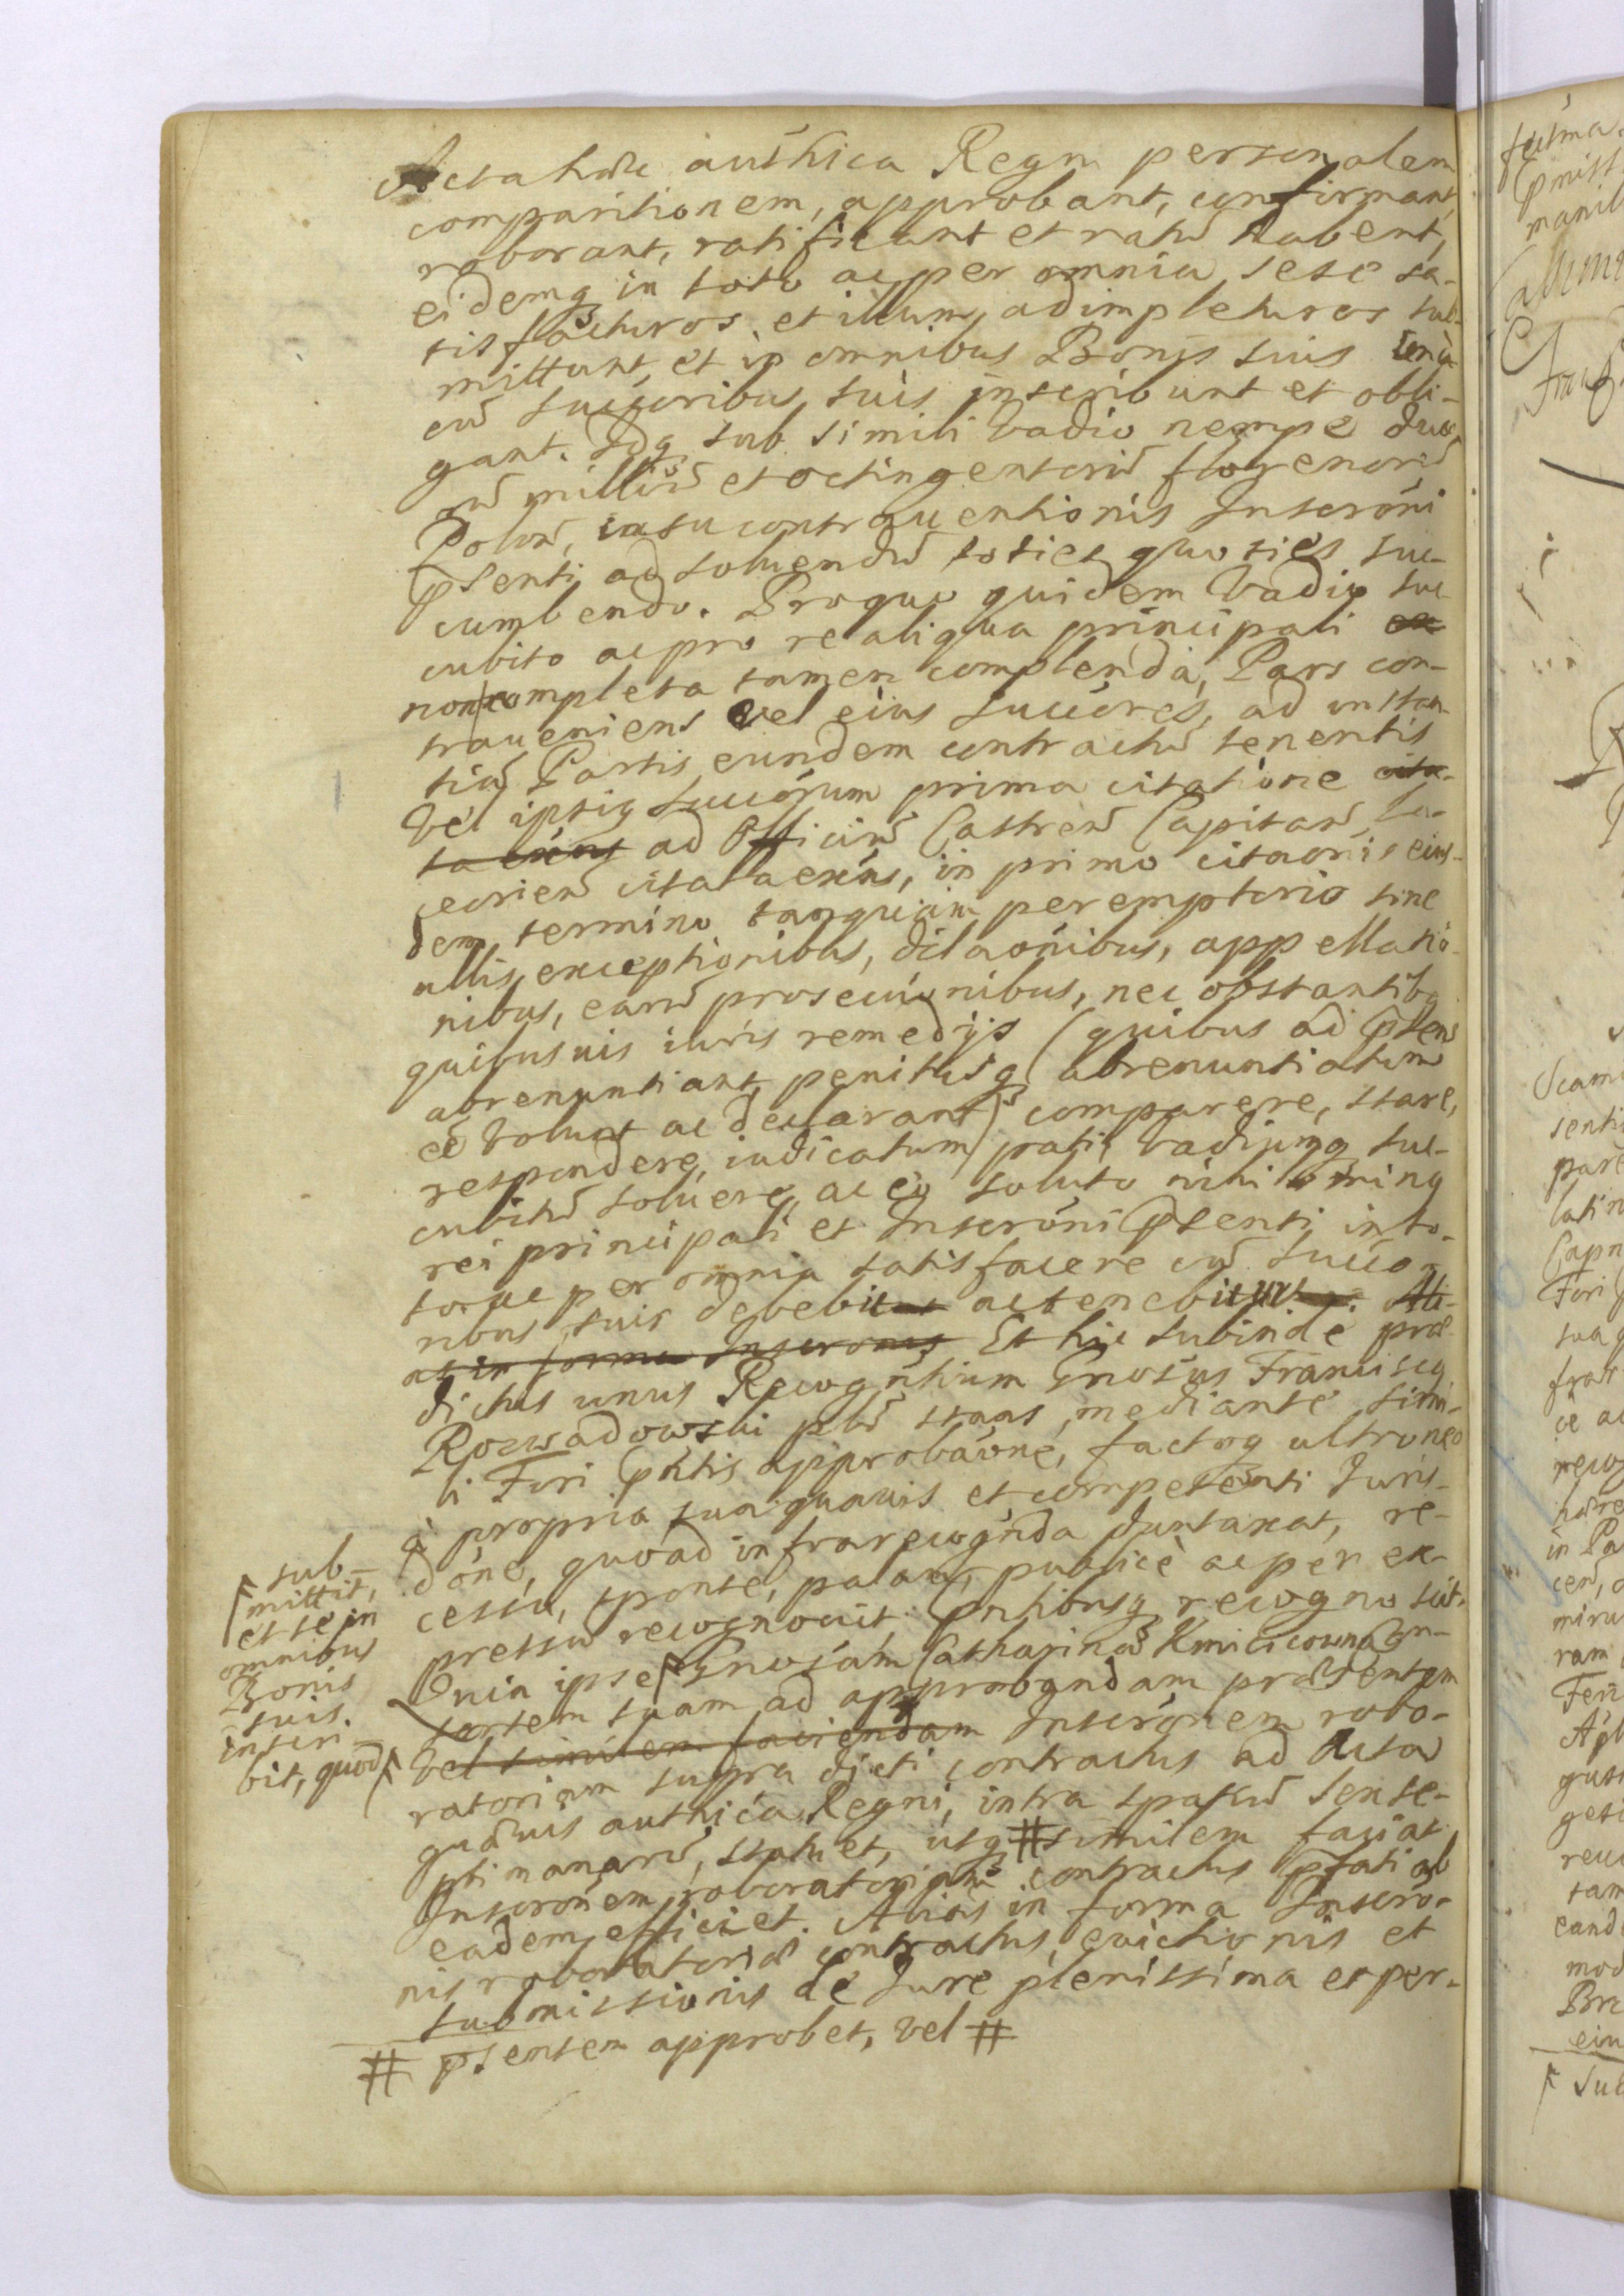 Acta hæc authica Regni personalem
comparitionem, approbant, confirmant,
roborant, ratificant et ratū habent,
eidemq in toto ac per omnia sese sa-
tisfacturos, et illum adimpleturos sub-
mittunt, et in omnibus Bonis suis unà
cū succoribus suis inscribunt et obli-
gant. Idq sub simili Vadio nempe duor-
um milliū et octingentorū florenorū
Polon, casu contrauentionis Inscrōni
psenti ad soluendū toties quoties suc-
cumbendo. Proquo quidem Vadio suc-
cubito ac pro re aliqua principali
non completa tamen complenda, Pars con-
traueniens vel eius succores, ad instan-
tiā Partis eundem contractū tenentis
Vel ipsiq succorum prima citatione cita-
ta exns ad Officiū Castren Capitan Le-
ecrien citata exns, in primo citaonis eius-
dem termino tanquam peremptorio sine
ullis exceptionibus, dilaonibus, appellatio-
nibus, earū prosecuōnibus, nec obstantibq
quibusuis iuris remedijs (quibus ad psens
abrenuntiant, penitusq abrenuntiatum
eē volunt ac declarant) comparere, stare,
respondere, iudicatum pati, Vadijumq suc-
cubitū soluere, ac eo soluto nihilominq
rei principali et Inscrōni psenti in to-
to ac per omnia satisfacere cū succo-
ribus suis debebit ac tenebitur. Ali-
as in forma Inscronis Et hic subinde præ-
dictus unus Recogntium Gnosus Franciscq
Rozwadowski plr̄ stans, mediante simi-
li Fori pntis approbaōne, factoq ultroneo
à propria sua quauis et competenti Juris-
dōne, quoad infrarecognda duntaxat, re-
cessu, sponte, palam, publicè ac per ex-
pressū recognouit, pntibusq recognoscit.
Quia ipse Gnosam Catharinā Kmicicowna Con-
sortem suam ad approbandam præsentem
Vel similem faciendam Inscrōnem robo-
ratoriam supra dicti contractus ad Acta
quæuis authica Regni, intra spatiū se
ptimanarū, statuet, utq # similem faciat
Inscrōnem roboratoriam contractus pfati ab
eadem efficiet. Alias in forma Inscrō-
nis roboratoriæ contractus, euictionis et
submissionis de Jure plenissima et per-
# psentem approbet, vel #
sub-
mittit,
et se in
omnibus
Bonis
suis
inscri-
bit, quod